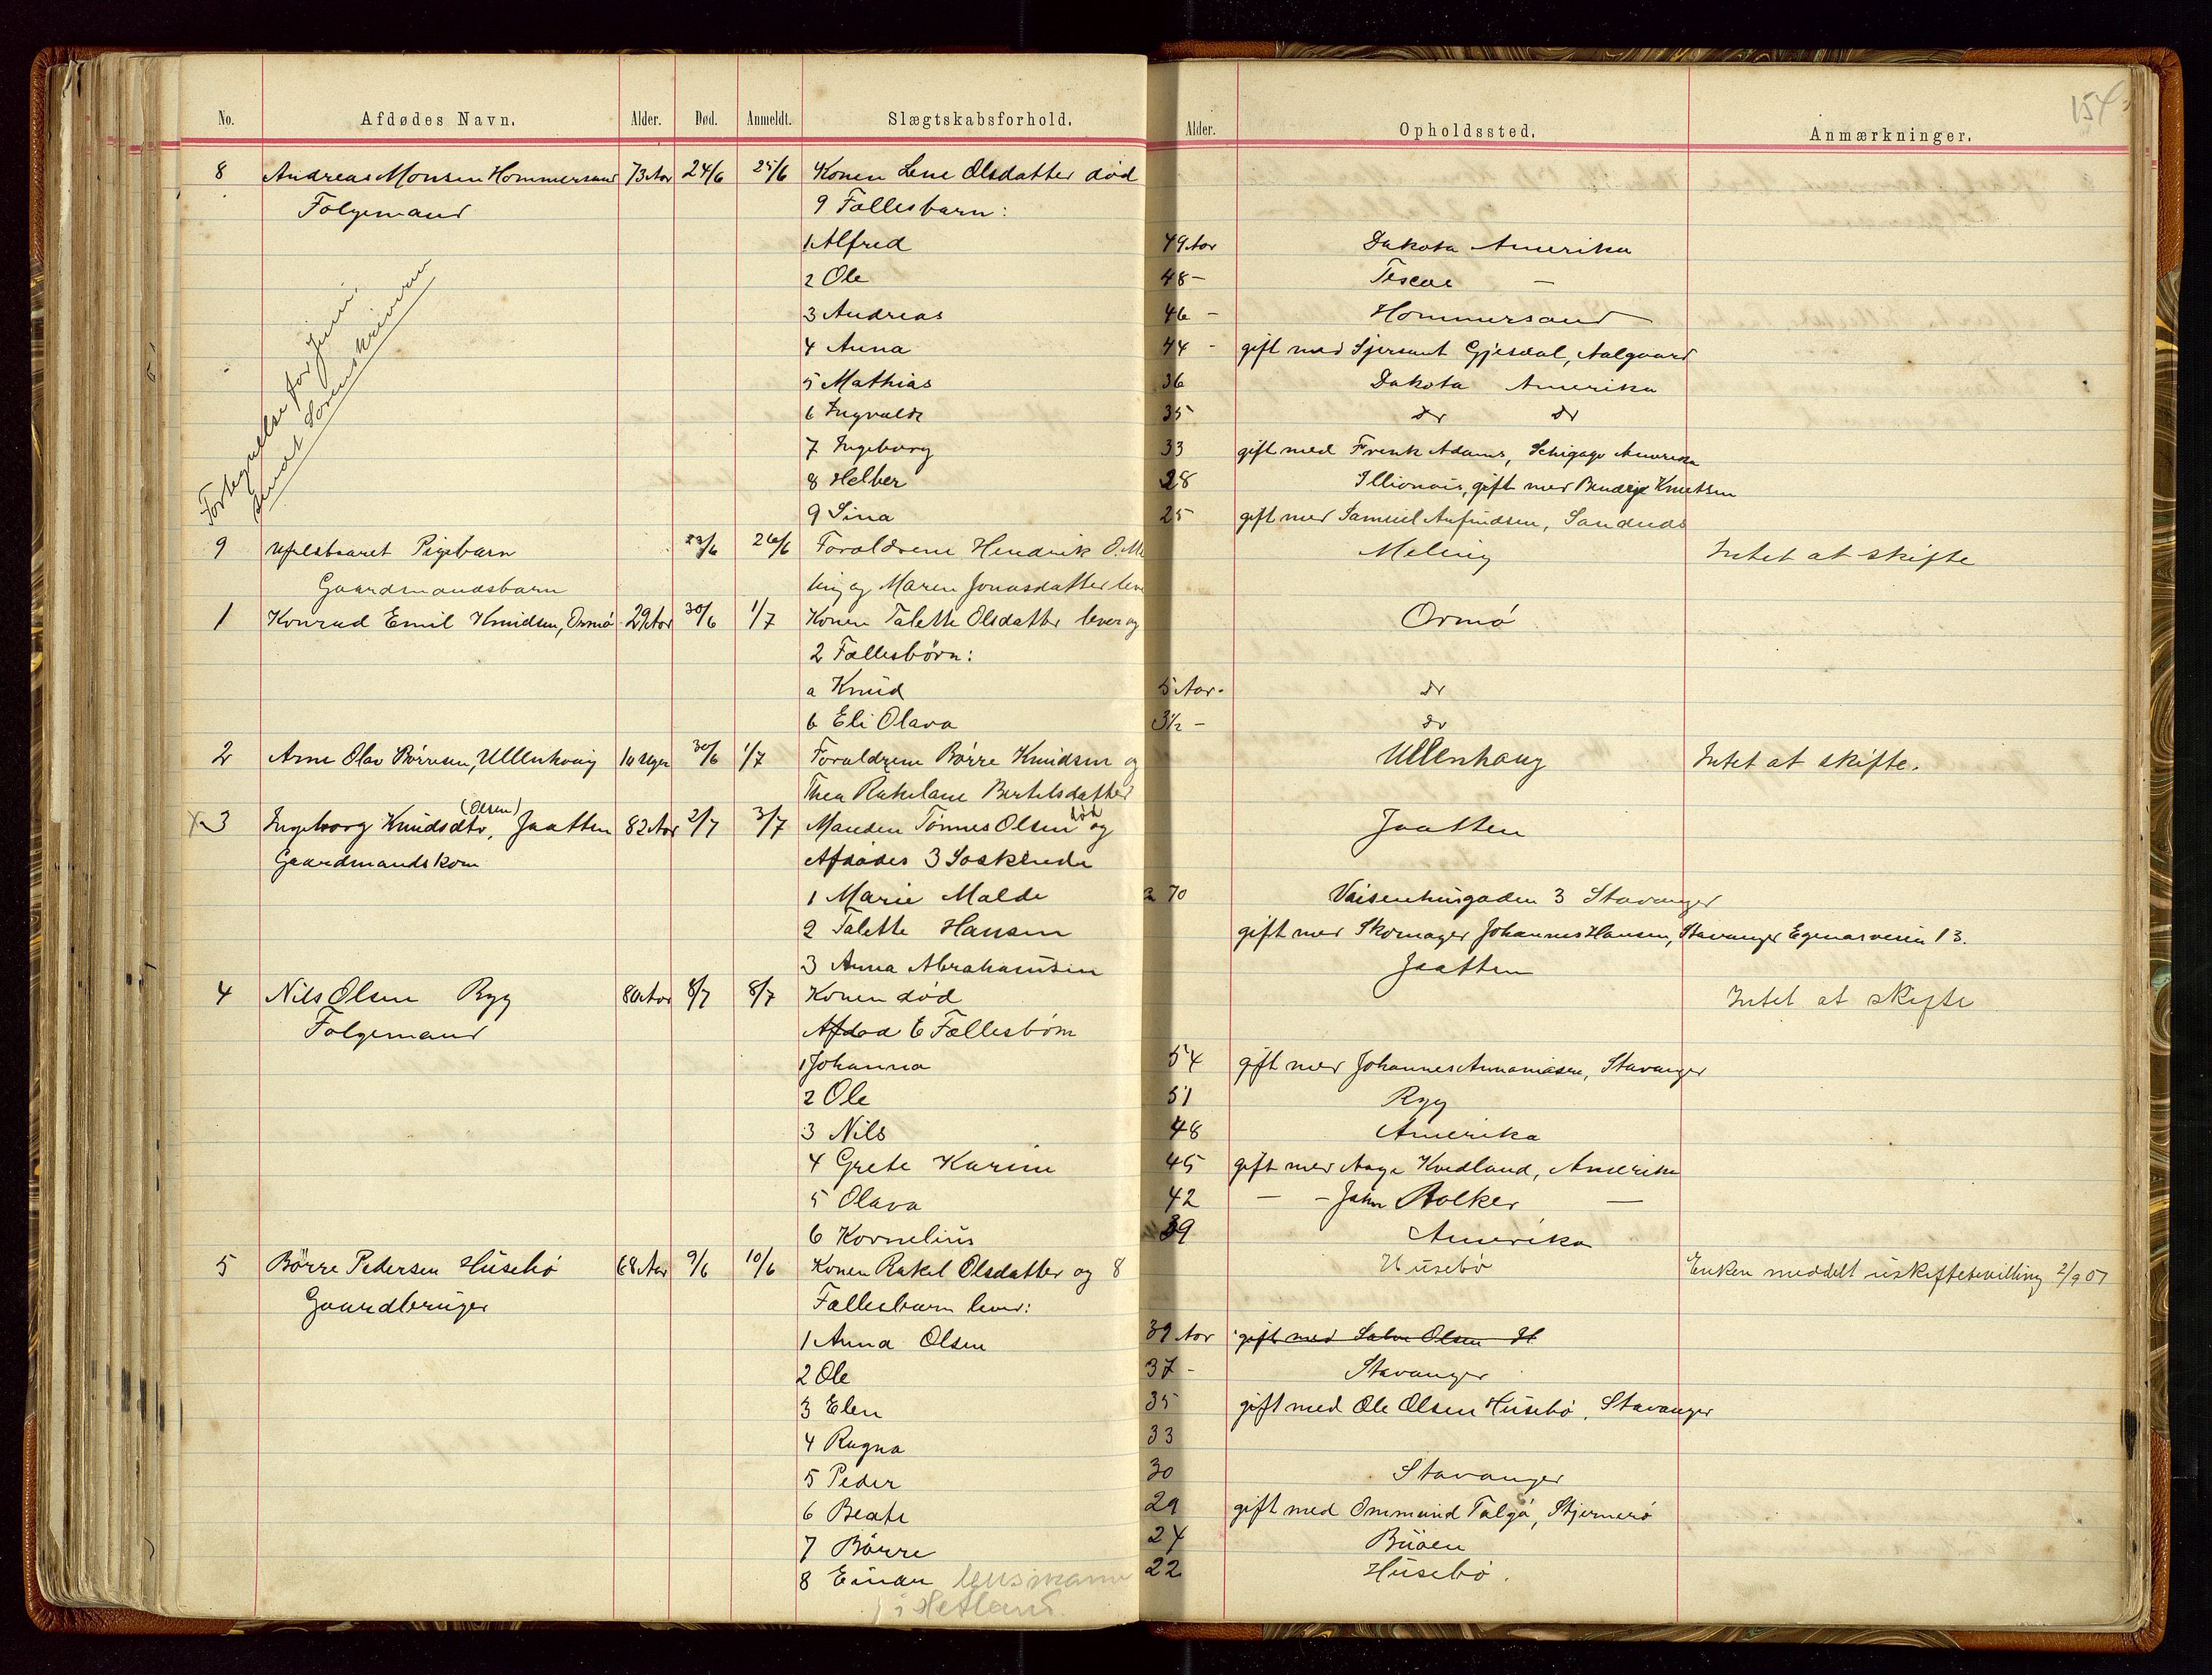 154
No. Afdødes Navn. Alder. Død. Anmeldt. Slægtskabsforhold. Alder. Opholdssted. Anmærkninger.
8 Andreas Monsen Hommersand 73 Aar 24/6 25/6 Konen Lene Olsdatter død
Folgemand 9 Fællesbarn:
1 Alfred 49 Aar Dakota Amerika
2 Ole 48 - —
3 Andreas 46 - Hommersand
4 Anna 44 - gift med Gjesdal, Aalgaard
5 Mathias 36 Dakota Amerika
6 Ingvald 35 do do
7 Ingeborg 33 gift med Frenk Adams, Schigago Amerika
8 Helber 28 Illionois, gift med Knutsen
9 Sina 25 gift med Samuel Anfindsen, Sandnæs
Fortegnelse for Juni
sendt Sorenskriveren
9 Pigebarn 23/6 26/6 Forældrene Hendrik O. Me Meling Intet at skifte
Gaardmandsbarn ling og Maren Jonasdatter leve
1 Konrad Emil Knudsen, Ormø 29 Aar 30/6 1/7 Konen Talette Olsdatter lever og Ormø
2 Fællesbørn:
a Knud 5 Aar. do
b Eli Olava 3½ - do
2 Arne Olav Børresen, Ullenhaug 10 Uger 30/6 1/7 Forældrene Børre Knudsen og Ullenhaug Intet at skifte.
Thea Rakelane Bertelsdatter
3 Ingeborg Knudsdtr, (Olsen) Jaatten 82 Aar 2/7 3/7 Manden Tønnes Olsen død og Jaatten
Gaardmandskone Afdødes 3 Søskende
1 Marie Malde 70 Vaisenhusgaden 3 Stavanger
2 Talette Hansen gift med Skomager Johannes Hansen, Stavanger Egenæsveien 13.
3 Anna Abrahamsen Jaatten
4 Nils Olsen Ryg 80 Aar 8/7 8/7 Konen død Intet at skifte
Folgemand Afdød 6 Fællesbørn
1 Johanna 54 gift med Johannes Annaniasen, Stavanger
2 Ole 51 Ryg
3 Nils 48 Amerika
4 Grete Karine 45 gift med Aage Kvedland, Amerika
5 Olava 42 — - John Bolker —
6 Kornelius 39 Amerika
5 Børre Pedersen Husebø 68 Aar 9/6 10/6 Konen Rakel Olsdatter og 8 Husebø Enken meddelt uskiftebevilling 2/9 07
Gaardbruger Fællesbarn lever:
1 Anna Olsen 39 Aar gift med Salve Olsen H
2 Ole 37 - Stavanger
3 Elen 35 gift med Ole Olsen Husebø, Stavanger
4 Ragna 33
5 Peder 30 Stavanger
6 Beate 29 gift med Ommund Talgø, Stjernerø
7 Børre 24 Buøen
8 Einar lensmann 22 Husebø.
i Hetland